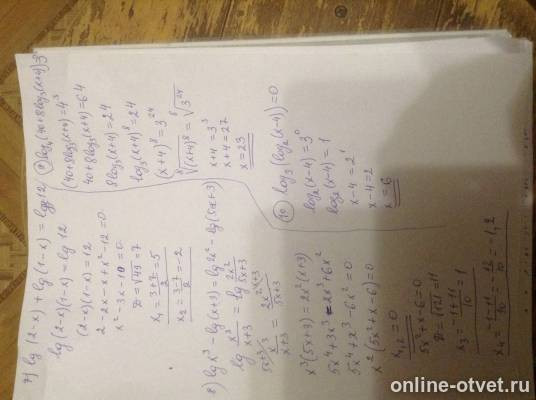 7) lg(2-x) + lg(1-x) = lg 12
lg(2-x)(1-x) = lg 12
(2-x)(1-x) = 12
2-2x-x+x²-12=0
x²-3x-10=0
D=√49=7
x₁ = (3+7)/2 = 5
x₂ = (3-7)/2 = -2
8) lg x³ - lg(x+3) = lg 2x² - lg(5x+3)
lg x³/(x+3) = lg 2x²/(5x+3)
x³/(x+3) = 2x²/(5x+3)
x³(5x+3) = 2x²(x+3)
5x⁴+3x³=2x³+6x²
5x⁴+x³-6x²=0
x²(5x²+x-6)=0
x₁,₂=0
5x²+x-6=0
D=√121=11
x₃ = (-1+11)/10 = 1
x₄ = (-1-11)/10 = -12/10 = -1,2
9) log₄(40+8log₃(x+4)) 3
(40+8log₃(x+4)=4³
40+8log₃(x+4)=64
8log₃(x+4)=24
log₃(x+4)⁸=24
(x+4)⁸=3²⁴
⁸√(x+4)⁸ = ⁸√3²⁴
x+4=3³
x+4=27
x=23
10) log₃(log₂(x-4))=0
log₂(x-4)=3⁰
log₂(x-4)=1
x-4=2¹
x-4=2
x=6
online-otvet.ru